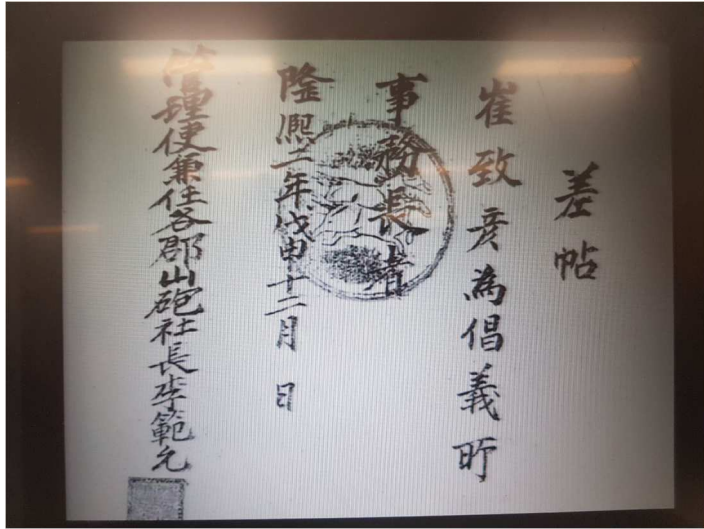 差帖
崔致彦為倡義所
事務長者
隆熙二年戊申十二月 日
管理使兼任各郡山砲社長李範允